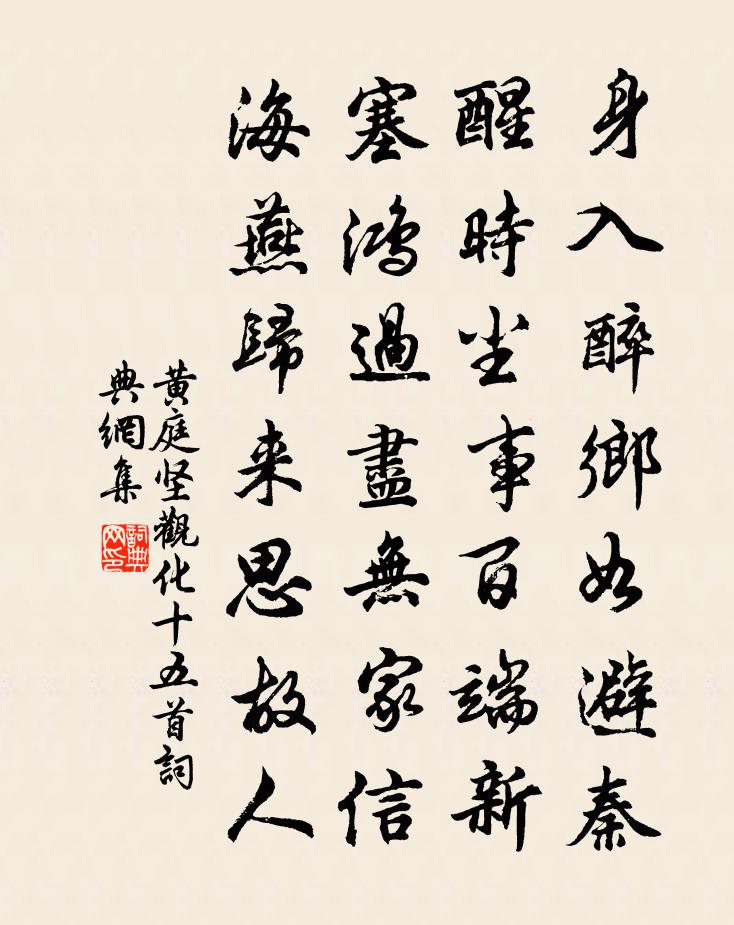 身入醉鄉如避秦
醒時坐事百端新
塞鴻過盡無家信
海燕歸来思故人
黄庭坚觀化十五首詞
典網集
詞典
网印